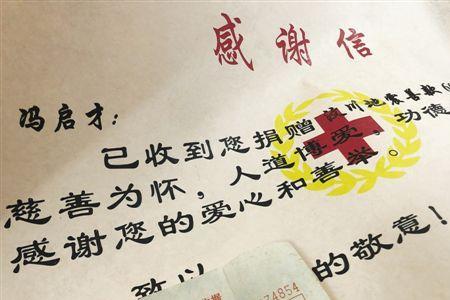 感谢信
冯启才:
已收到您捐赠汶川地震募款
慈善为怀,人道博爱,功德
感谢您的爱心和善举。
致以 的敬意!
74854